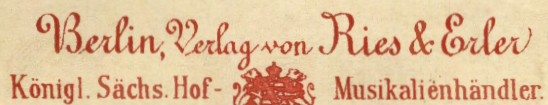 Berlin, Verlag von Ries & Erler
Königl. Sächs. Hof- Musikalienhändler.